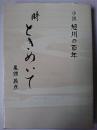 小説 旭川の百年
時
ときめいて